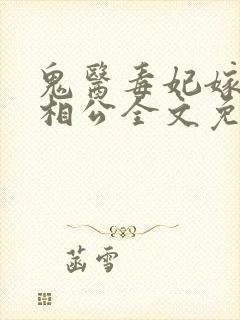 鬼醫毒妃嫁
相公全文免
菡雪